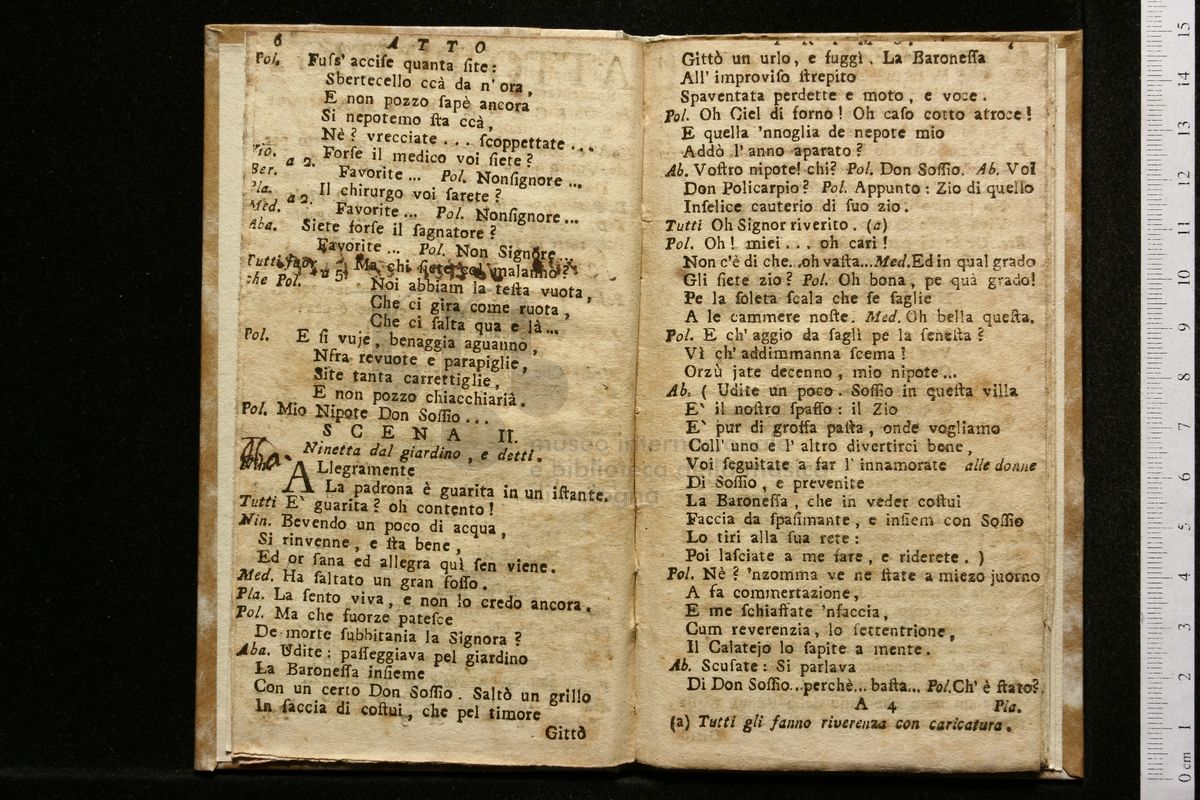 6 ATTO
Pol. Fuſs' acciſe quanta ſite:
Sbertecello ccà da n' ora,
E non pozzo ſapè ancora
Si nepotemo ſta ccà,
Nè? vrecciate ... ſcoppettate ...
Forſe il medico voi ſiete?
a 2.
Ber. Favorite ... Pol. Nonſignore ...
Pla. Il chirurgo voi ſarete?
a 2.
Med. Favorite ... Pol. Nonſignore ...
Aba. Siete forſe il ſagnatore?
Favorite ... Pol. Non Signore ...
Tutti fuor Ma chi ſiete col malanno?
che Pol. a 5 Noi abbiam la teſta vuota,
Che ci gira come ruota,
Che ci ſalta qua e là...
Pol. E ſi vuje, benaggia aguanno,
Nfra revuote e parapiglie,
Site tanta carrettiglie,
E non pozzo chiacchiarià.
Pol. Mio Nipote Don Soſſio ...
SCENA II.
Ninetta dal giardino, e detti.
Aba.
ALlegramente
La padrona è guarita in un iſtante.
Tutti E` guarita? oh contento!
Nin. Bevendo un poco di acqua,
Si rinvenne, e ſta bene,
Ed or ſana ed allegra quì ſen viene.
Med. Ha ſaltato un gran foſſo.
Pla. La ſento viva, e non lo credo ancora.
Pol. Ma che fuorze pateſce
De morte ſubbitania la Signora?
Aba. Udite: paſſeggiava pel giardino
La Baroneſſa inſieme
Con un certo Don Soſſio. Saltò un grillo
In faccia di coſtui, che pel timore
Gittò
Gittò un urlo, e fuggì. La Baroneſſa
All' improviſo ſtrepito
Spaventata perdette e moto, e voce.
Pol. Oh Ciel di forno! Oh caſo cotto atroce!
E quella 'nnoglia de nepote mio
Addò l' anno aparato?
Ab. Voſtro nipote! chi? Pol. Don Soſſio. Ab. Voi
Don Policarpio? Pol. Appunto: Zio di quello
Infelice cauterio di ſuo zio.
Tutti Oh Signor riverito. (a)
Pol. Oh! miei ... oh cari!
Non c'è di che...oh vaſta...Med.Ed in qual grado
Gli ſiete zio? Pol. Oh bona, pe quà grado!
Pe la ſoleta ſcala che ſe ſaglie
A le cammere noſte. Med. Oh bella queſta.
Pol. E ch' aggio da ſaglì pe la feneſta?
Vì ch' addimmanna ſcema!
Orzù jate decenno, mio nipote ...
Ab. ( Udite un poco. Soſſio in queſta villa
E` il noſtro ſpaſſo: il Zio
E` pur di groſſa paſta, onde vogliamo
Coll' uno e l' altro divertirci bene,
Voi ſeguitate a far l' innamorate alle donne
Di Soſſio, e prevenite
La Baroneſſa, che in veder coſtui
Faccia da ſpaſimante, e inſiem con Soſſio
Lo tiri alla ſua rete:
Poi laſciate a me fare, e riderete. )
Pol. Nè? 'nzomma ve ne ſtate a miezo juorno
A fa commertazione,
E me ſchiaffate 'nfaccia,
Cum reverenzia, lo ſettentrione,
Il Calatejo lo ſapite a mente.
Ab. Scuſate: Si parlava
Di Don Soſſio...perchè... baſta... Pol.Ch' è ſtato?
A 4 Pla.
(a) Tutti gli fanno riverenza con caricatura.